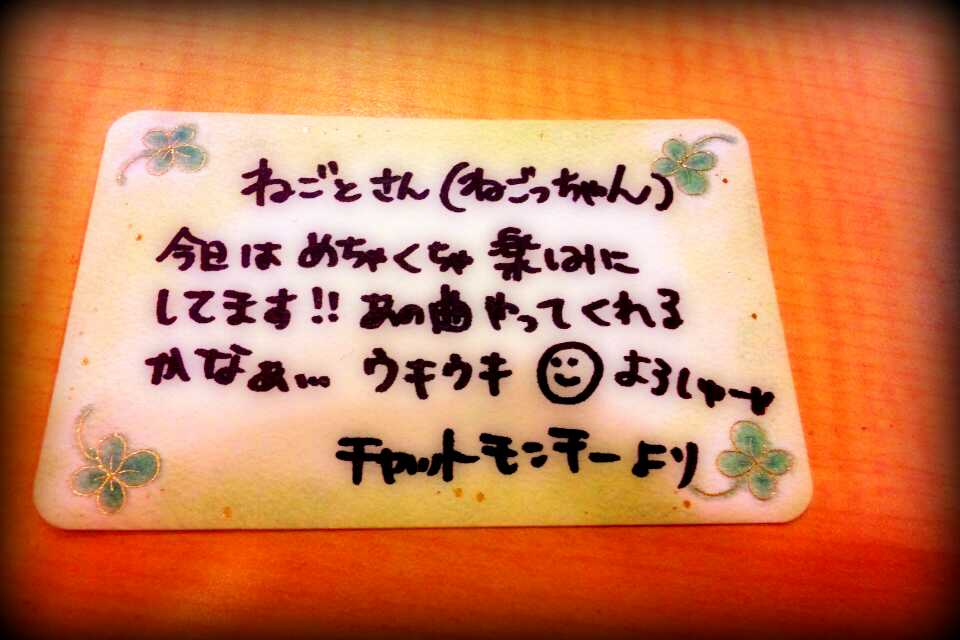 ねごとさん(ねごっちゃん)
今日は めちゃくちゃ 楽しみに
してます!! あの曲 やってくれる
かなぁ… ウキウキ よろしゅーゃ
チャットモンチーより